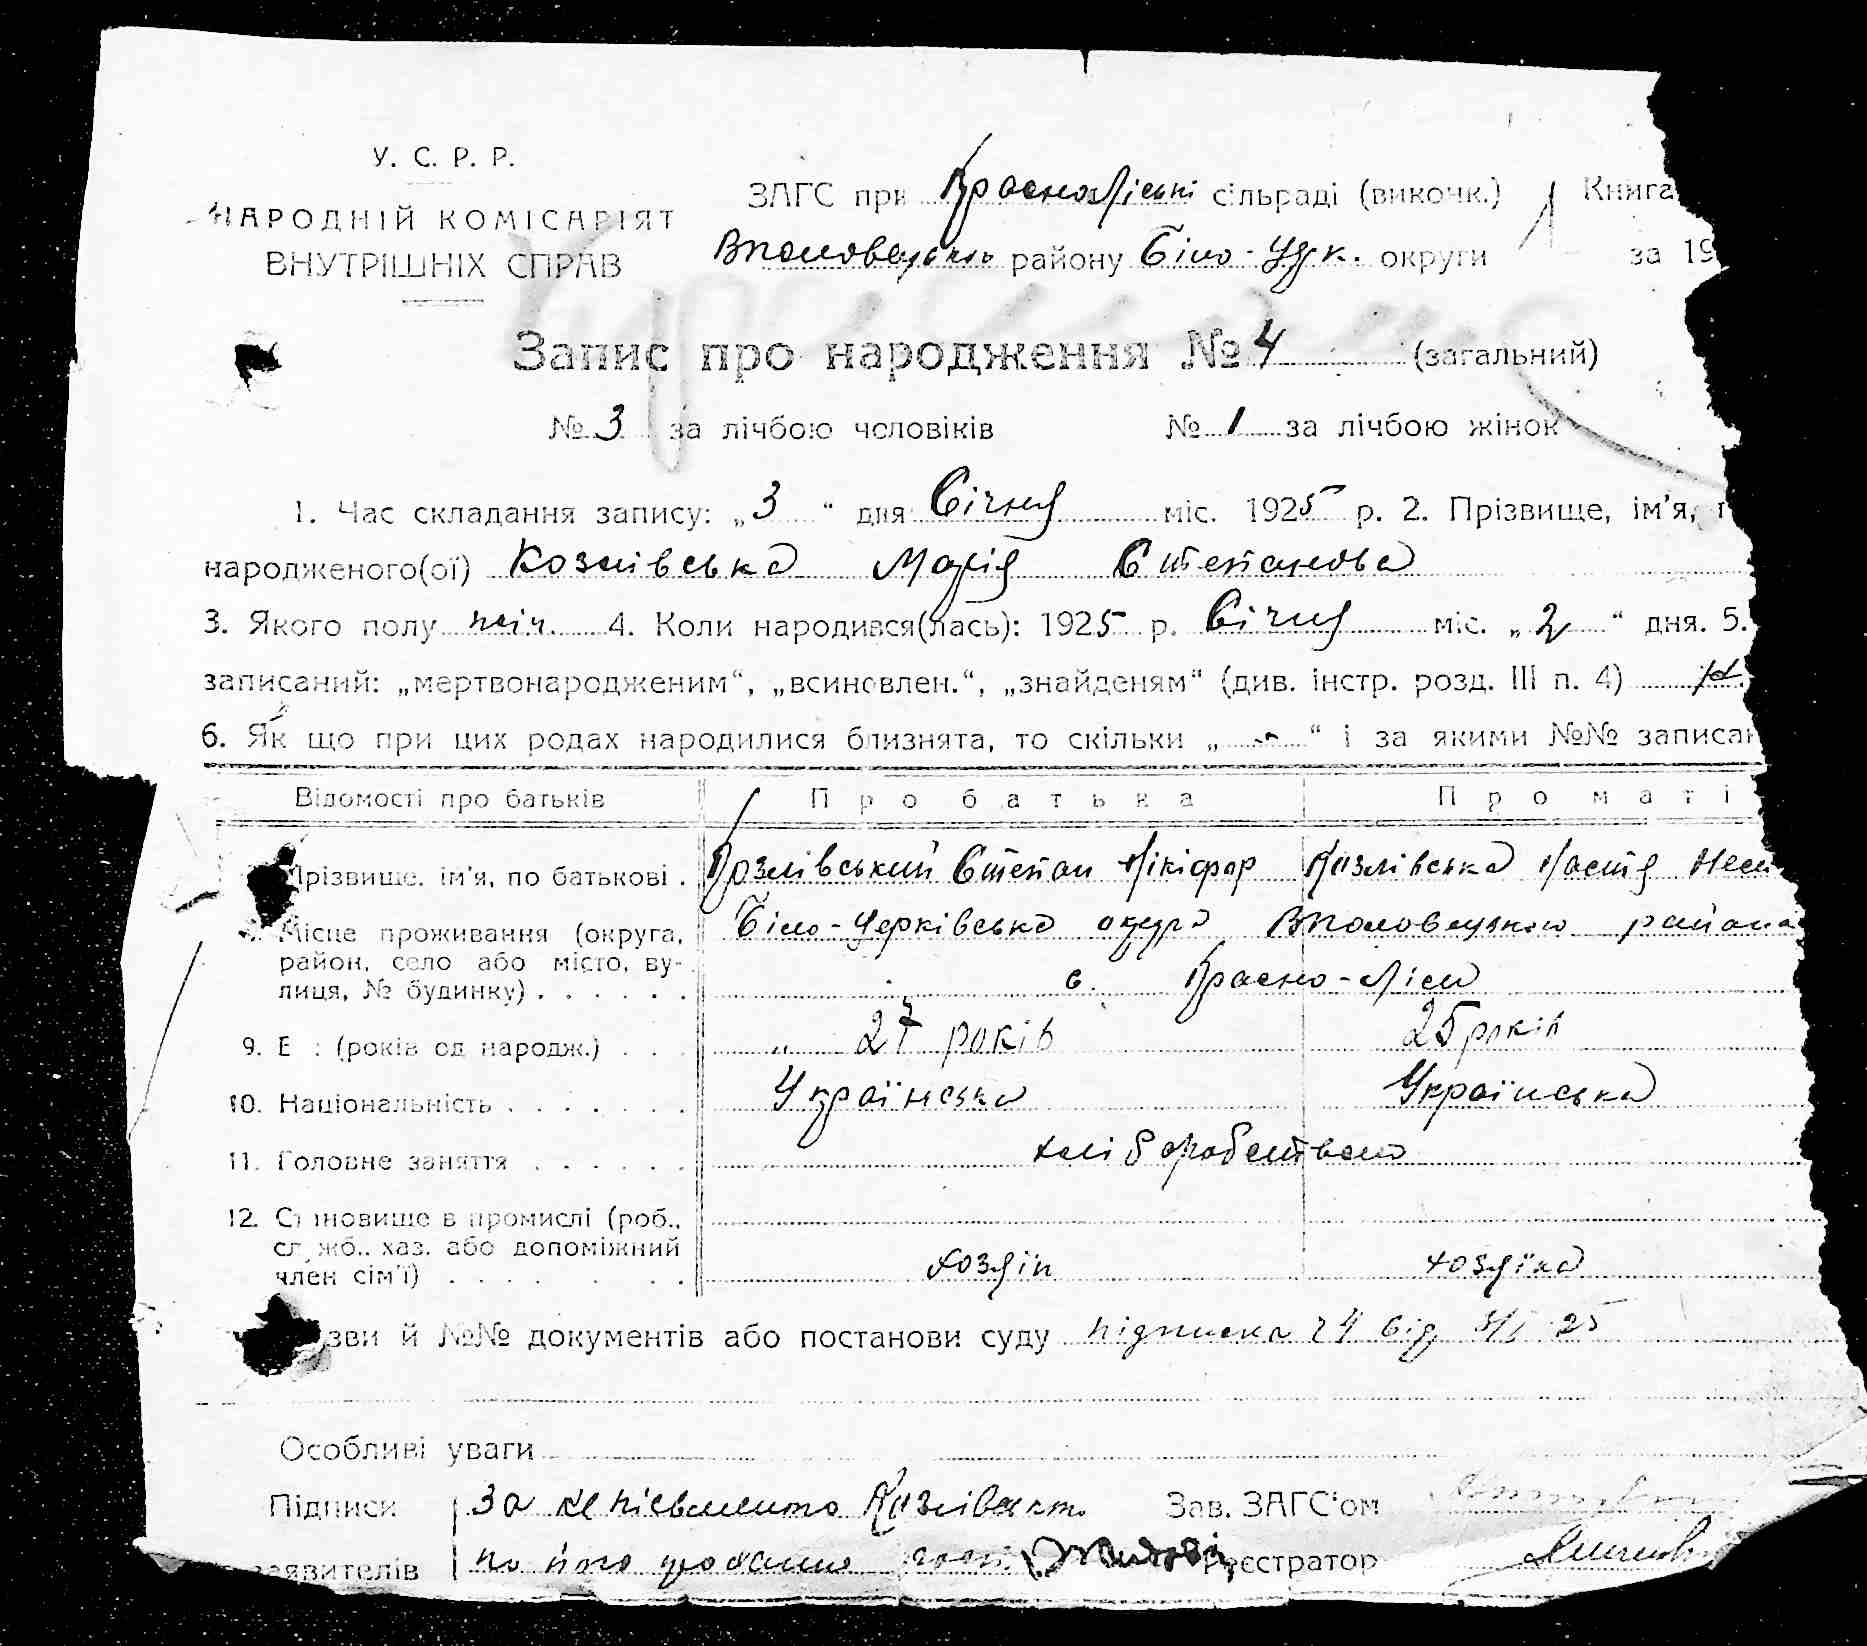 У. С. Р. Р.
НАРОДНІЙ КОМІСАРІЯТ
ВНУТРІШНІХ СПРАВ
ЗАГС при Красноліські сільраді (викочк.) Книга
Вполовецького району Біло-Црк. округи за 19
Запис про народження № 4 (загальний)
№ 3 за лічбою чоловіків № 1 за лічбою жінок
1. Час складання запису: „3“ дня Січня міс. 1925 р. 2. Прізвище, ім'я,
народженого(ої) Козлівська Марія Степанова
3. Якого полу жіч. 4. Коли народився(лась): 1925 р. Січня міс. „2“ дня. 5.
записаний: „мертвонародженим“, „всиновлен.“, „знайденям“ (див. інстр. розд. III п. 4)
6. Як що при цих родах народилися близнята, то скільки „ “ і за якими №№ записан
Відомості про батьків Про батька Про маті
Прізвище, ім'я, по батькові . Козлівський Степан Нікіфор Козлівська Настя
Місце проживання (округа, Біло-Черківська округа Вполовецького района
район, село або місто, ву-
лиця, № будинку) . . . . . . с. Красно-Ліси
9. (років од народж.) . . . „ 27 років 25 років
10. Національність . . . . . . . Українська Українська
11. Головне заняття . . . . . . хліборобство
12. Становище в промислі (роб.,
служб., хаз. або допоміжний
член сім'ї) . . . . . . . . хозяїн хозяїка
зви й №№ документів або постанови суду підписка 24 від 3/I 25
Особливі уваги
Підписи За не письменного Козлівськ Зав. ЗАГС'ом
заявителів по його проханню Реєстратор